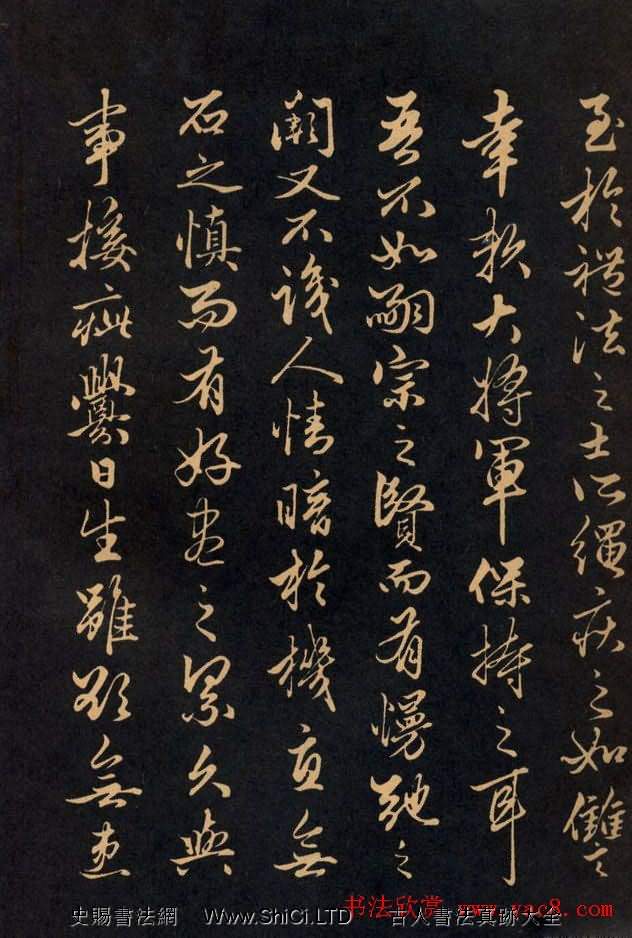 至於禮法之士所繩疾之如讎
幸賴大將軍保持之耳
吾不如嗣宗之賢而有慢弛之
闕又不識人情暗於機宜無
石之慎而有好盡之累久與
事接疵釁日生雖欲無患
书法欣赏 www.yac8.com
史賜書法網 Www.ShiCi.LTD 古人書法真跡大全